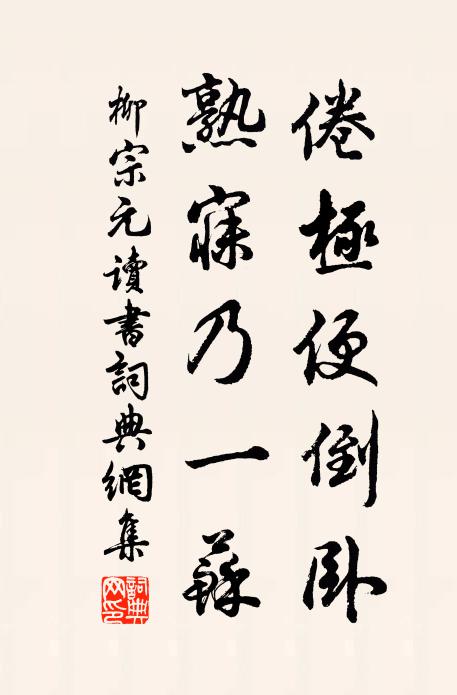 倦極便倒卧
熟寐乃一蘇
柳宗元讀書詞典網集
詞典網印